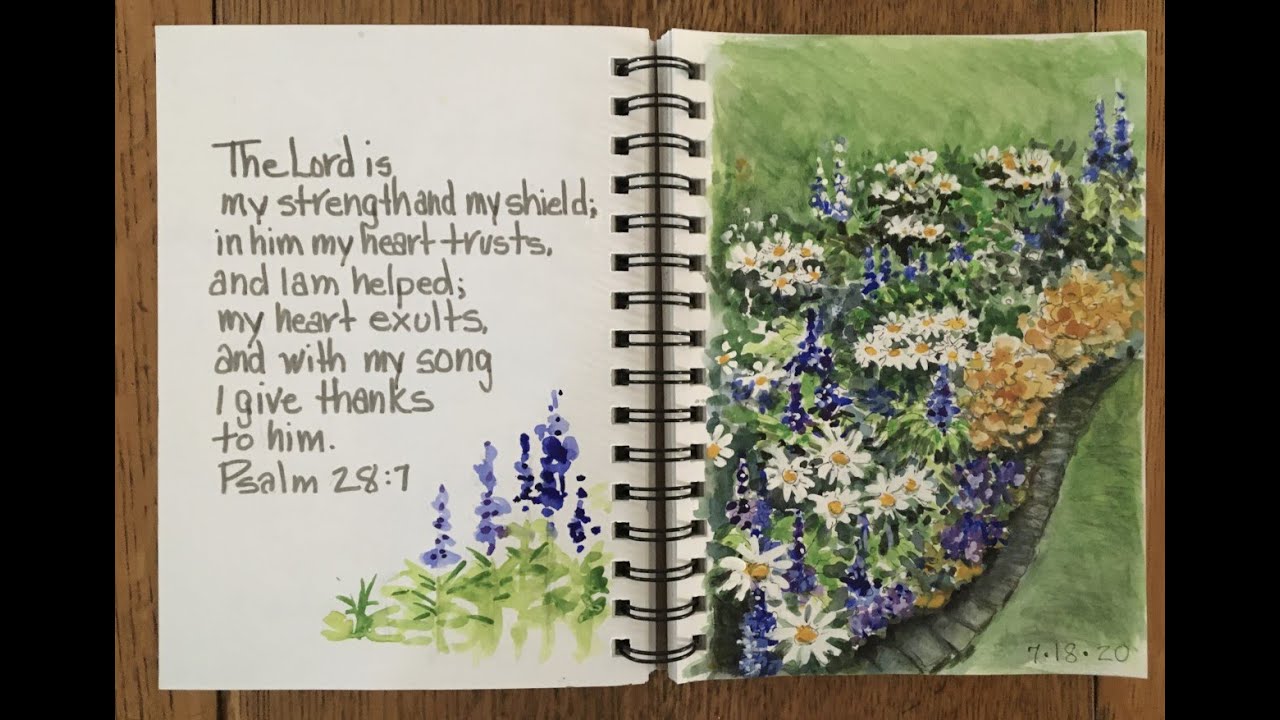 The Lord is
my strength and my shield;
in him my heart trusts,
and I am helped;
my heart exults,
and with my song
I give thanks
to him.
Psalm 28:7
7•18•20